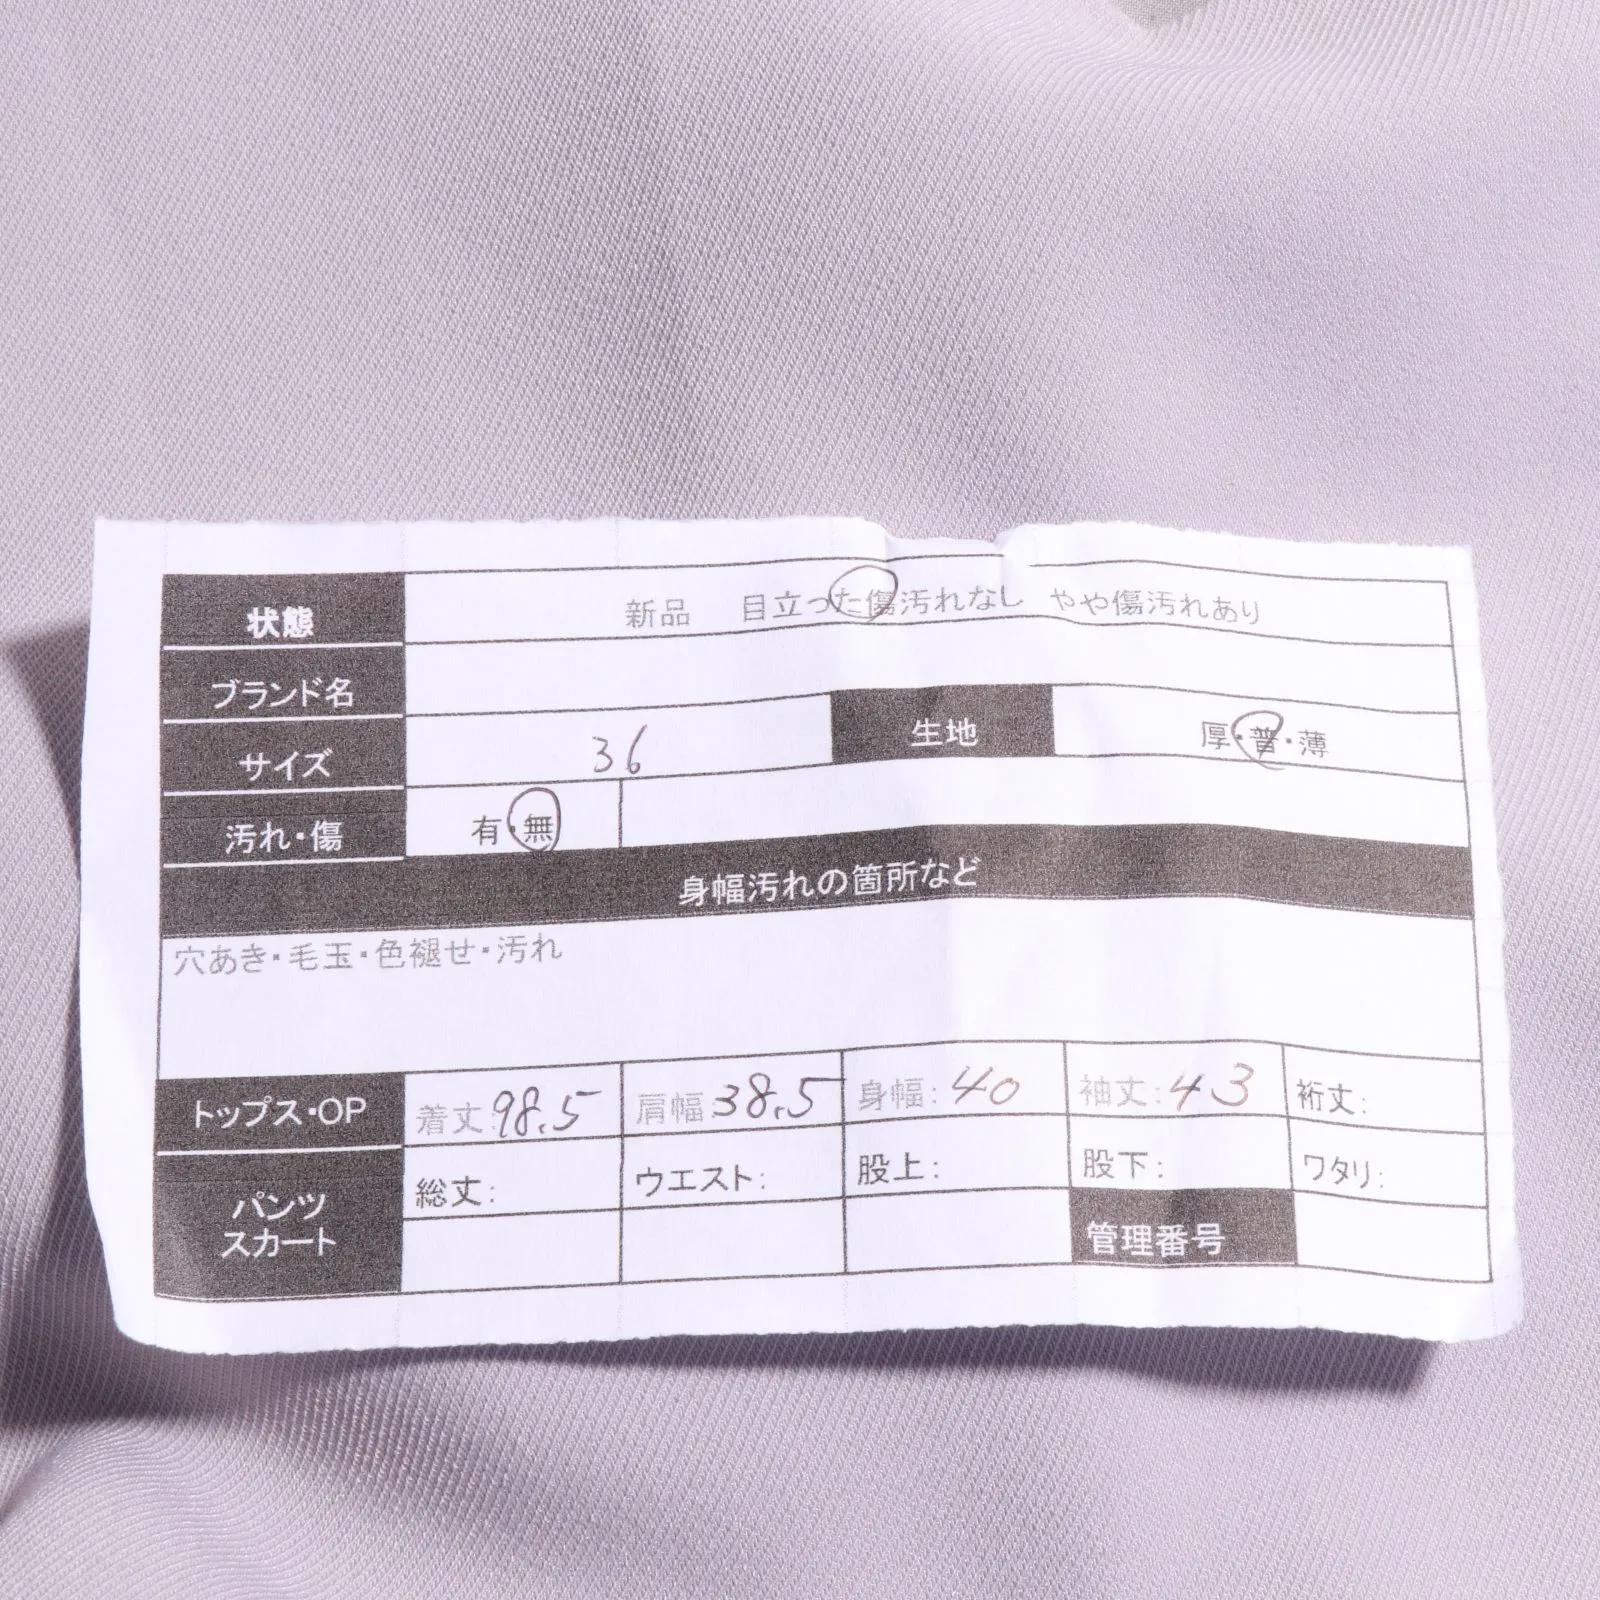 状態 新品 目立った傷汚れなし やや傷汚れあり
ブランド名
サイズ 36 生地 厚・普・薄
汚れ・傷 有・無
身幅汚れの箇所など
穴あき・毛玉・色褪せ・汚れ
トップス・OP 着丈:98.5 肩幅:38.5 身幅:40 袖丈:43 裄丈:
パンツ 総丈: ウエスト: 股上: 股下: ワタリ:
スカート 管理番号